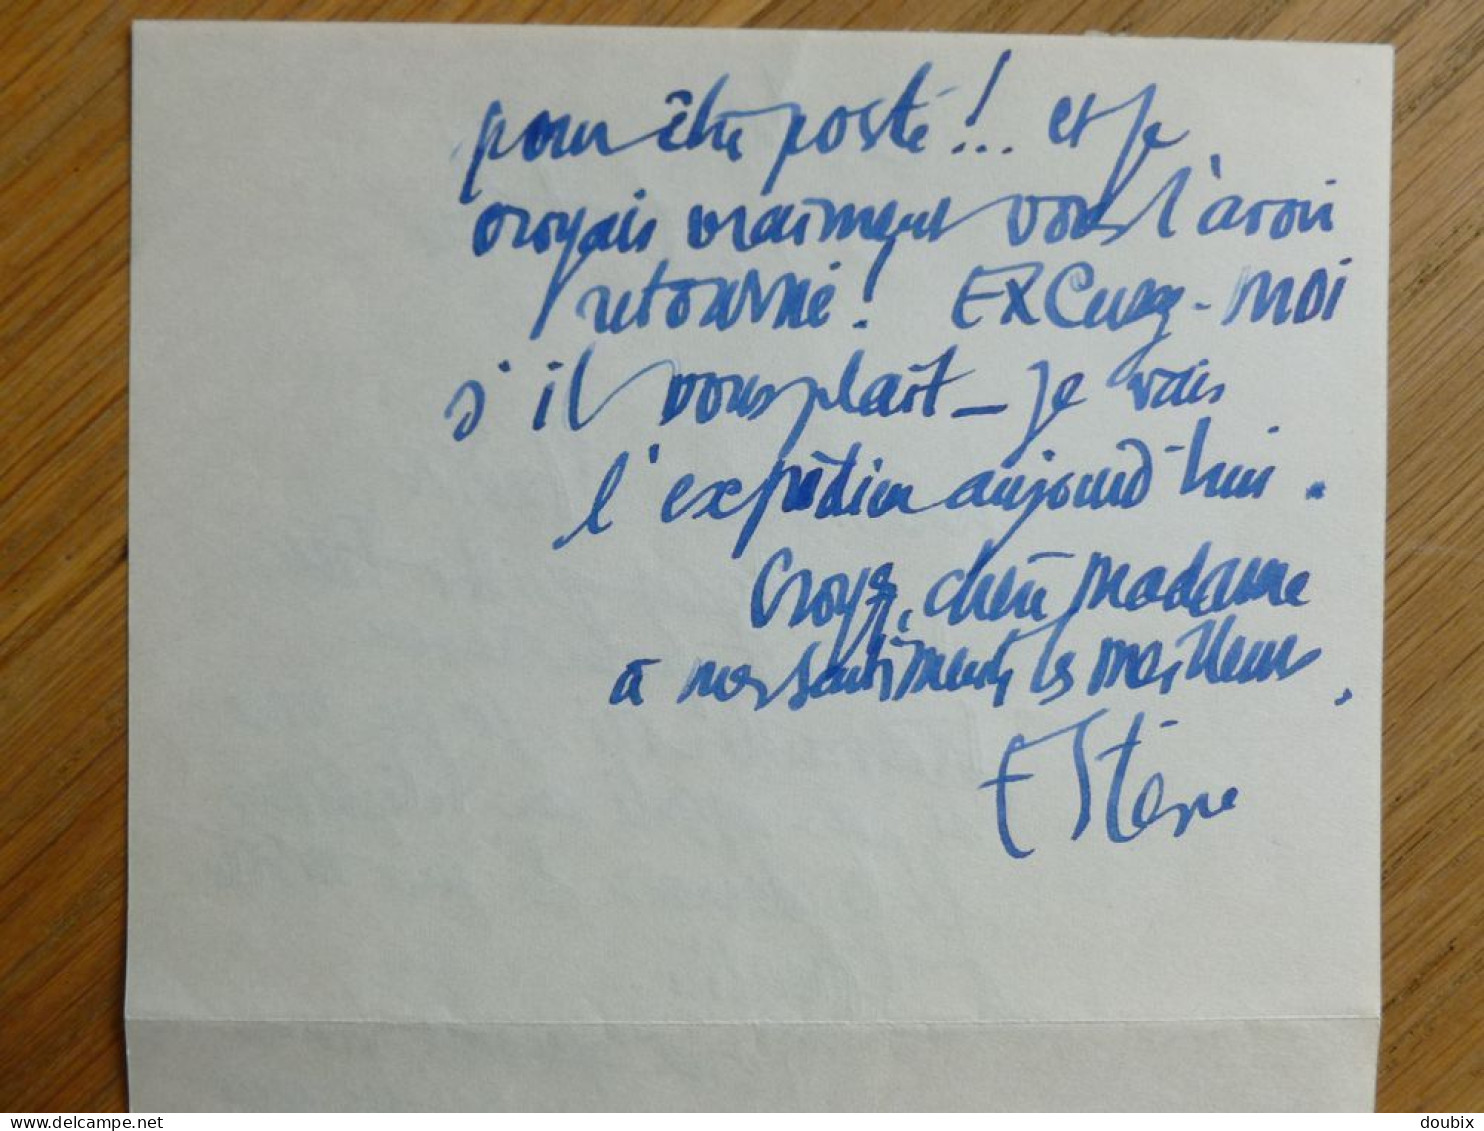 pour être posté!... et je
croyais vraiment vous l'avoir
retourné! EXCusez-moi
s'il vous plaît _ Je vais
l'expédier aujourd'hui.
Croyez, chère madame
à mes sentiments les meilleurs.
Estève
delcampe.net
doubix